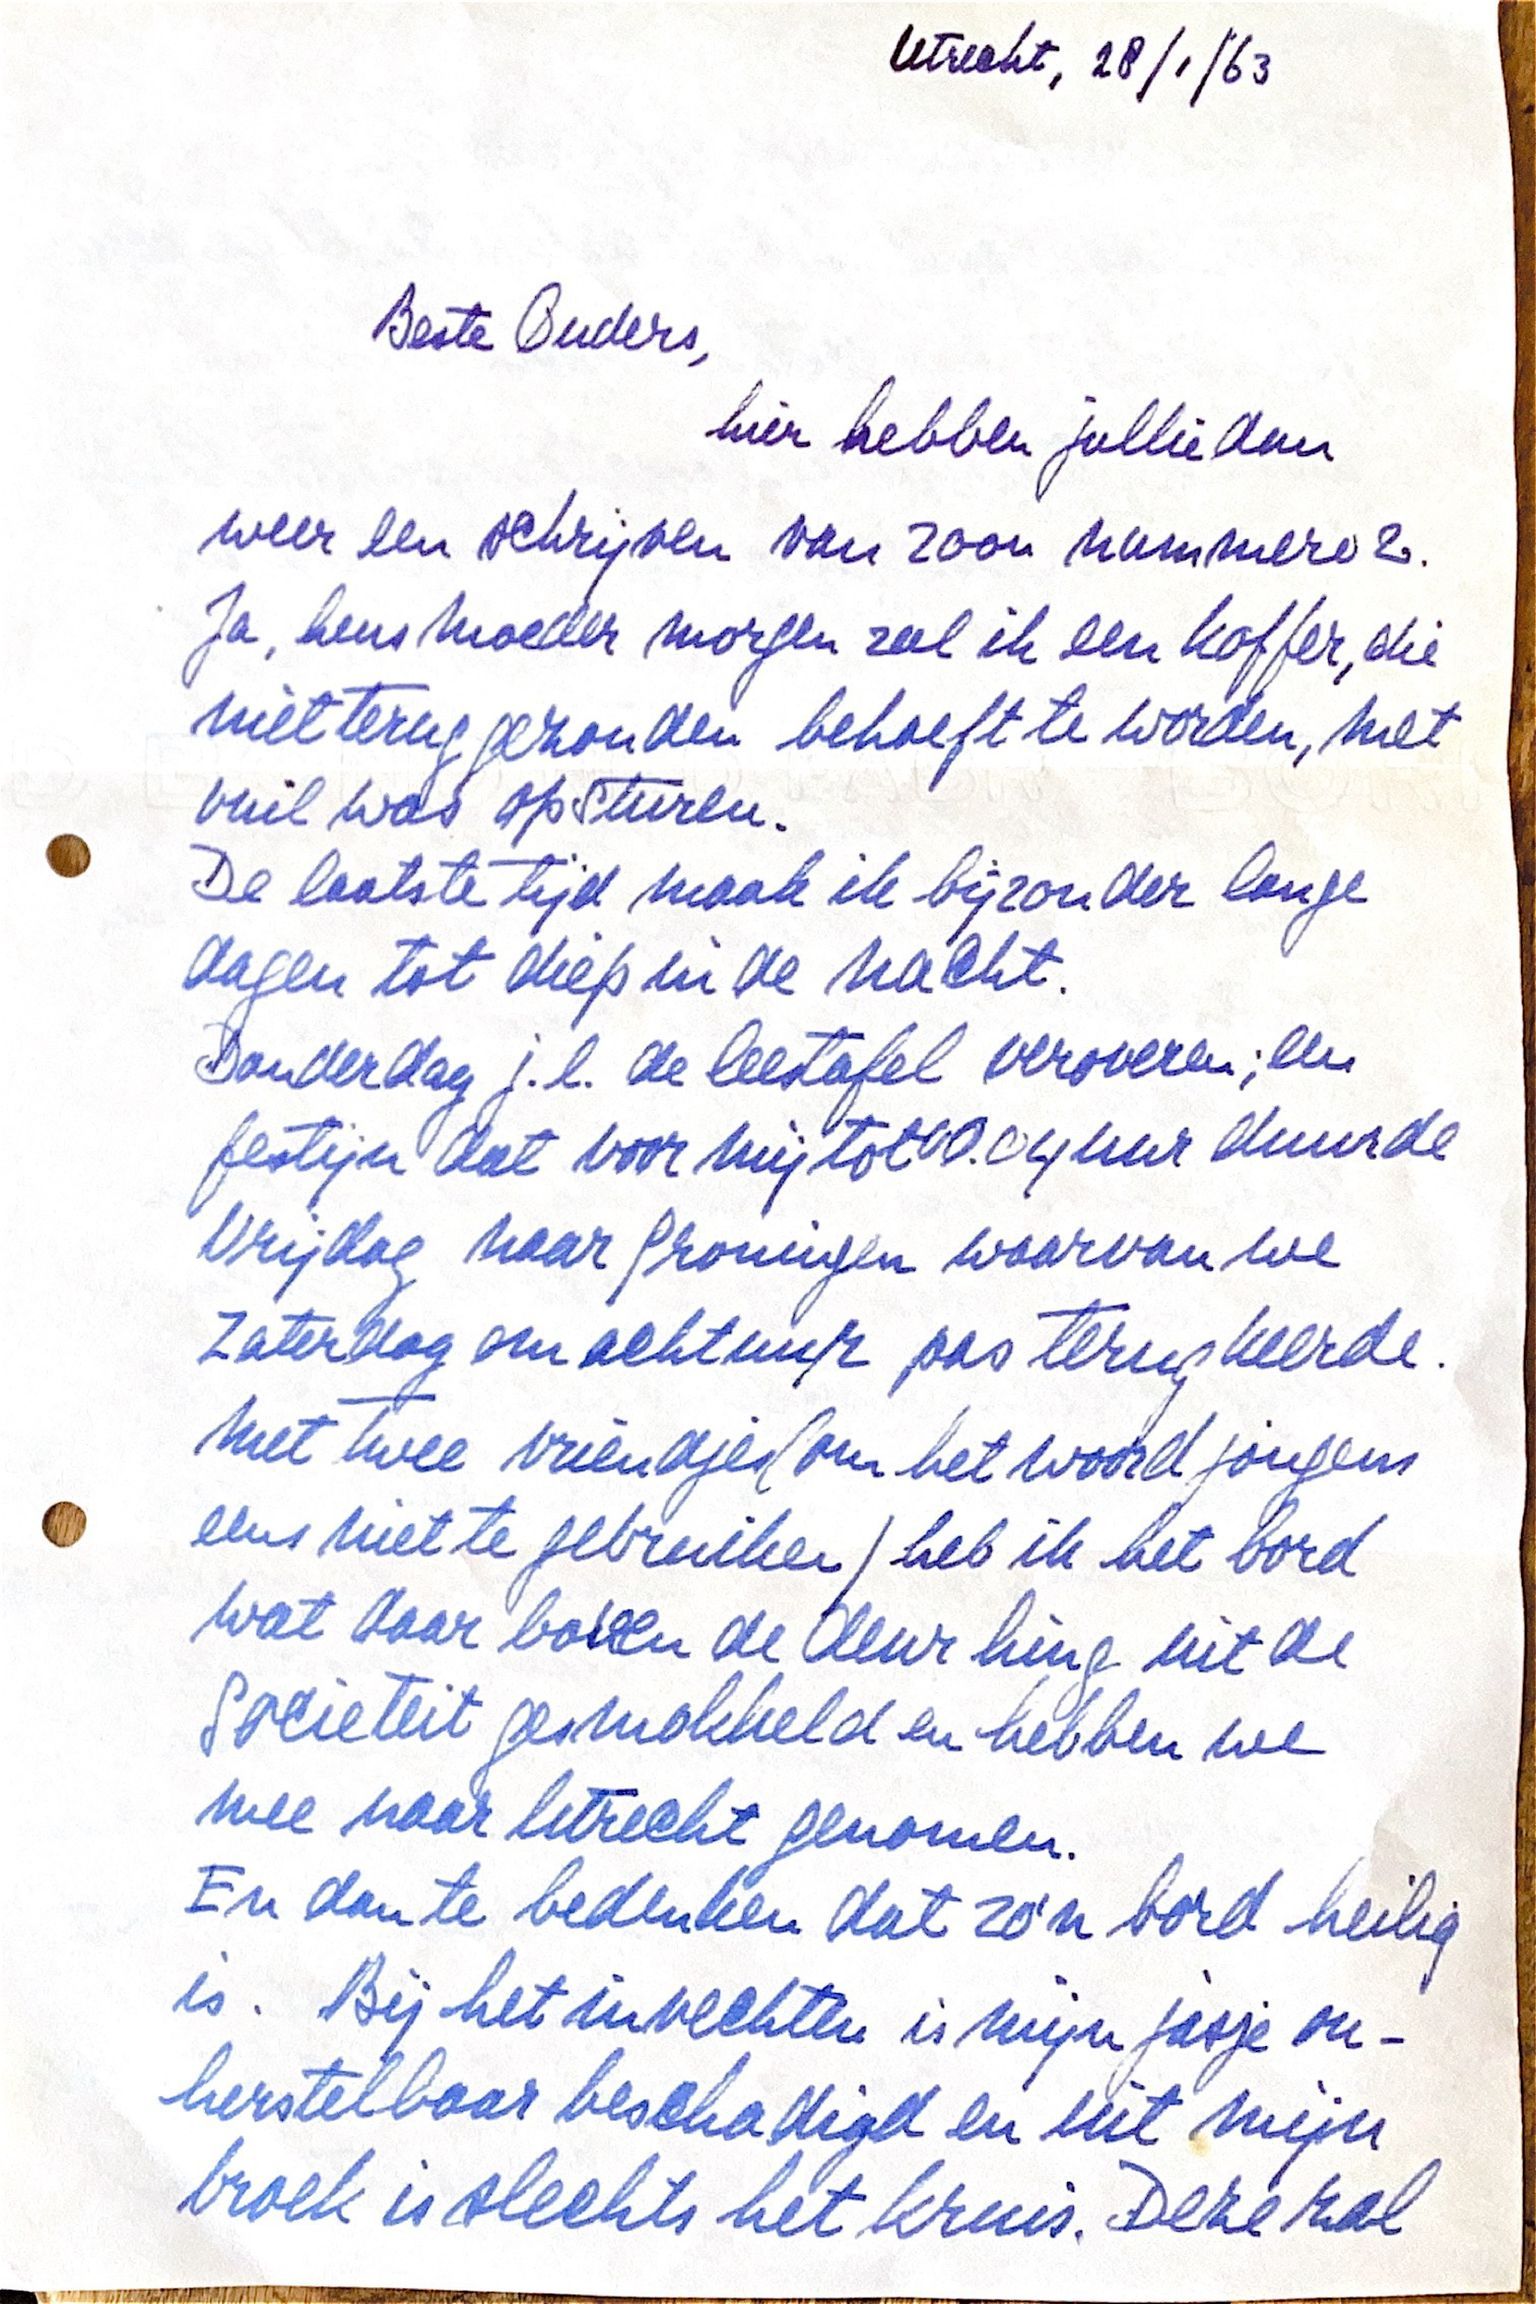 Utrecht, 28/1/'63
Beste Ouders,
hier hebben jullie dan
weer een schrijven van zoon nummero 2.
Ja, heus moeder morgen zal ik een koffer, die
niet terug gezonden behoeft te worden, met
vuil was opsturen.
De laatste tijd maak ik bijzonder lange
dagen tot diep in de nacht.
Donderdag j.l. de leestafel veroveren; een
festijn dat voor mij tot uur duurde
Vrijdag naar Groningen waarvan we
Zaterdag om acht uur pas terugkeerde.
Met twee vriendjes (om het woord jongens
eens niet te gebruiken) heb ik het bord
wat daar boven de deur hing uit de
Societeit gesmokkeld en hebben we
mee naar Utrecht genomen.
En dan te bedenken dat zo'n bord heilig
is. Bij het invechten is mijn jasje on-
herstelbaar beschadigd en uit mijn
broek is slechts het kruis. Deze zal